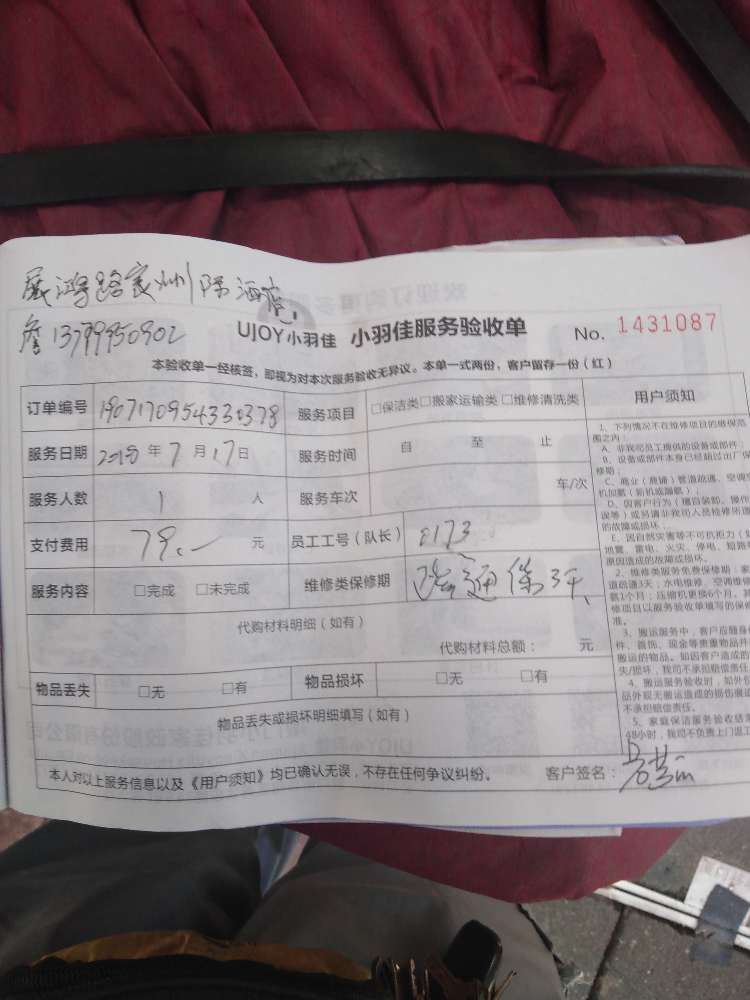 詹 13799950902
UJOY小羽佳 小羽佳服务验收单 No. 1431087
本验收单一经核签，即视为对本次服务验收无异议。本单一式两份，客户留存一份（红）
订单编号 190717095433 378 服务项目 □保洁类□搬家运输类□维修清洗类 用户须知
服务日期 年7月17日 服务时间 自 至 止
服务人数 1 人 服务车次 车/次
支付费用 79.- 元 员工工号（队长） 2173
服务内容 □完成 □未完成 维修类保修期 疏通保3天
代购材料明细（如有）
代购材料总额： 元
物品丢失 □无 □有 物品损坏 □无 □有
物品丢失或损坏明细填写（如有）
本人对以上服务信息以及《用户须知》均已确认无误，不存在任何争议纠纷。 客户签名：
1、下列情况不在维修项目的缴保范
围之内：
A、非我司员工提供的设备或部件
B、设备或部件本身已经超过出厂保
修期；
C、商业（商铺）管道疏通、空调空
机加氟（新机或隔氟）；
D、因客户行为（擅自装卸、操作
误等）或另请非我司人员检修所造
的故障或损坏
E、因自然灾害等不可抗拒力（如
地震、雷电、火灾、停电、短路等
原因造成的故障或损坏。
2、维修类服务免费保修期：家
道疏通3天；水电维修、空调维修
氟1个月；压缩机更换6个月。其
修项目以服务验收单填写的保修
准。
3、搬运服务中，客户应随身
件、首饰、现金等贵重物品并
搬运的物品。如因客户造成的
失/损坏，我司不承担赔偿责任
4、搬运服务验收时，如外包
品外观无搬运造成的损伤痕迹
不承担赔偿责任。
5、家庭保洁服务验收结束
48小时，我司不负责上门返工